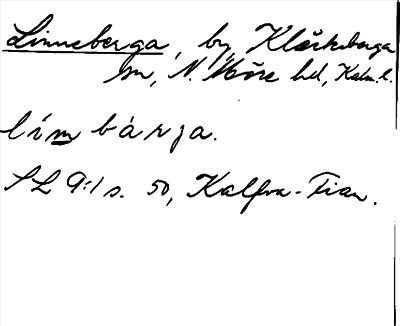 Linneberga, by, Kläckeberga
sn, N. Möre hd, Kalm. l.
límbárga.
SL 9:1 s. 50, Kalfva-Tian.